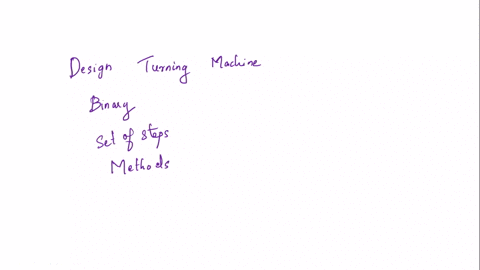 Design Turning Machine
Binary
Set of steps
Methods